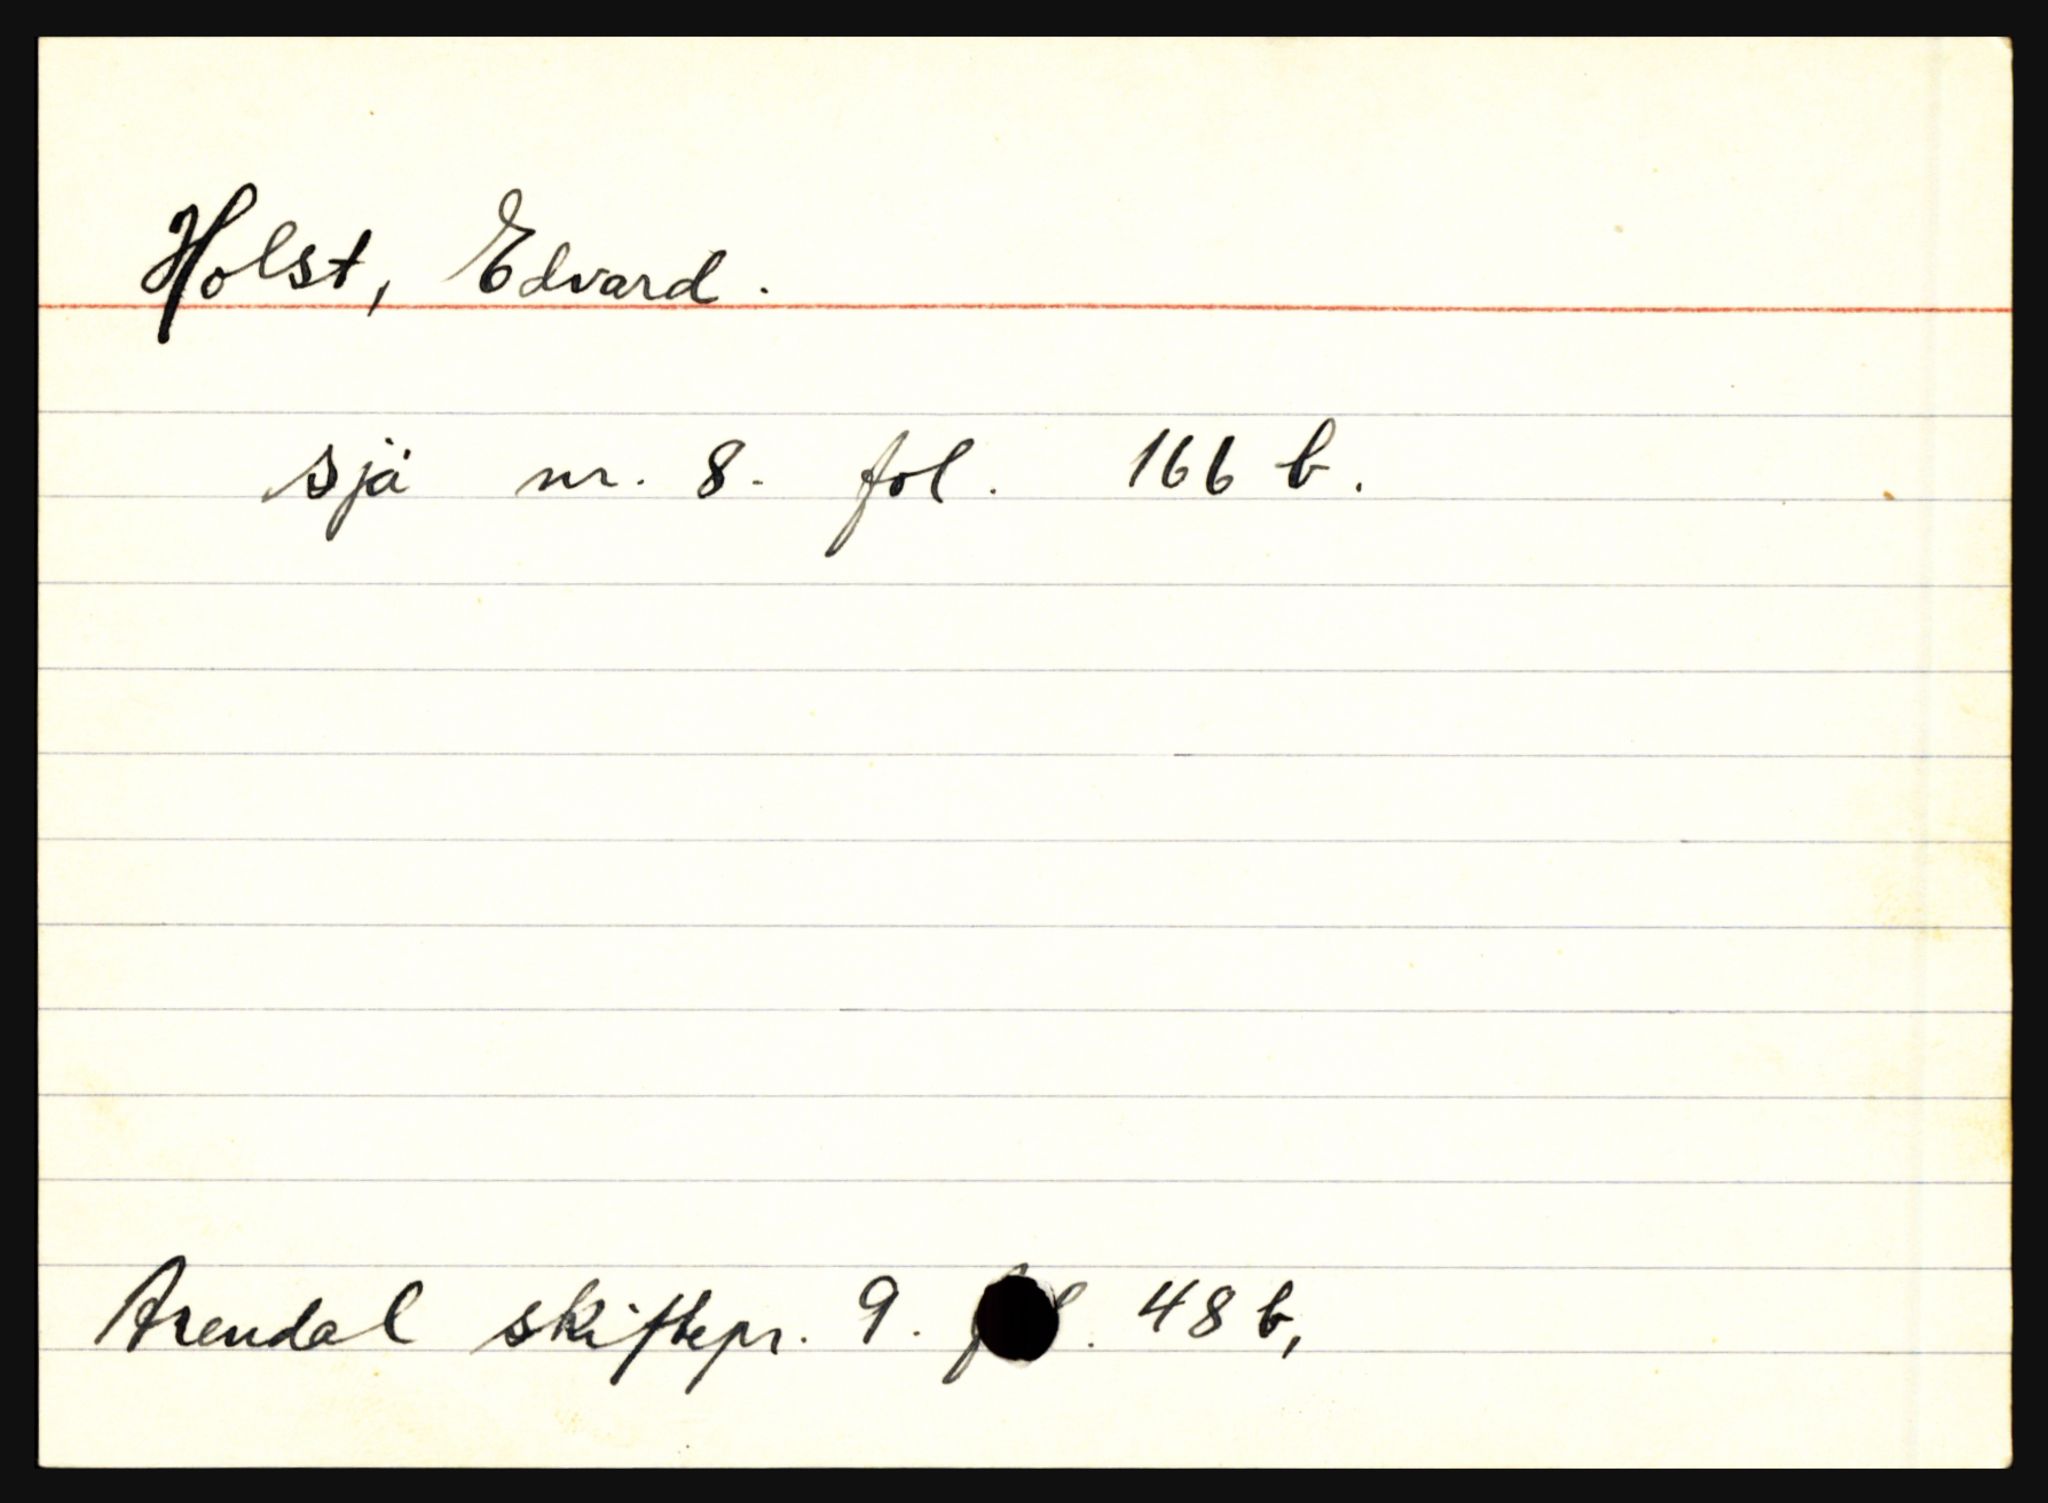 Holst, Edvard.
sjå nr. 8. fol. 166 b.
Arendal skiftepr. 9. fol. 48 b.